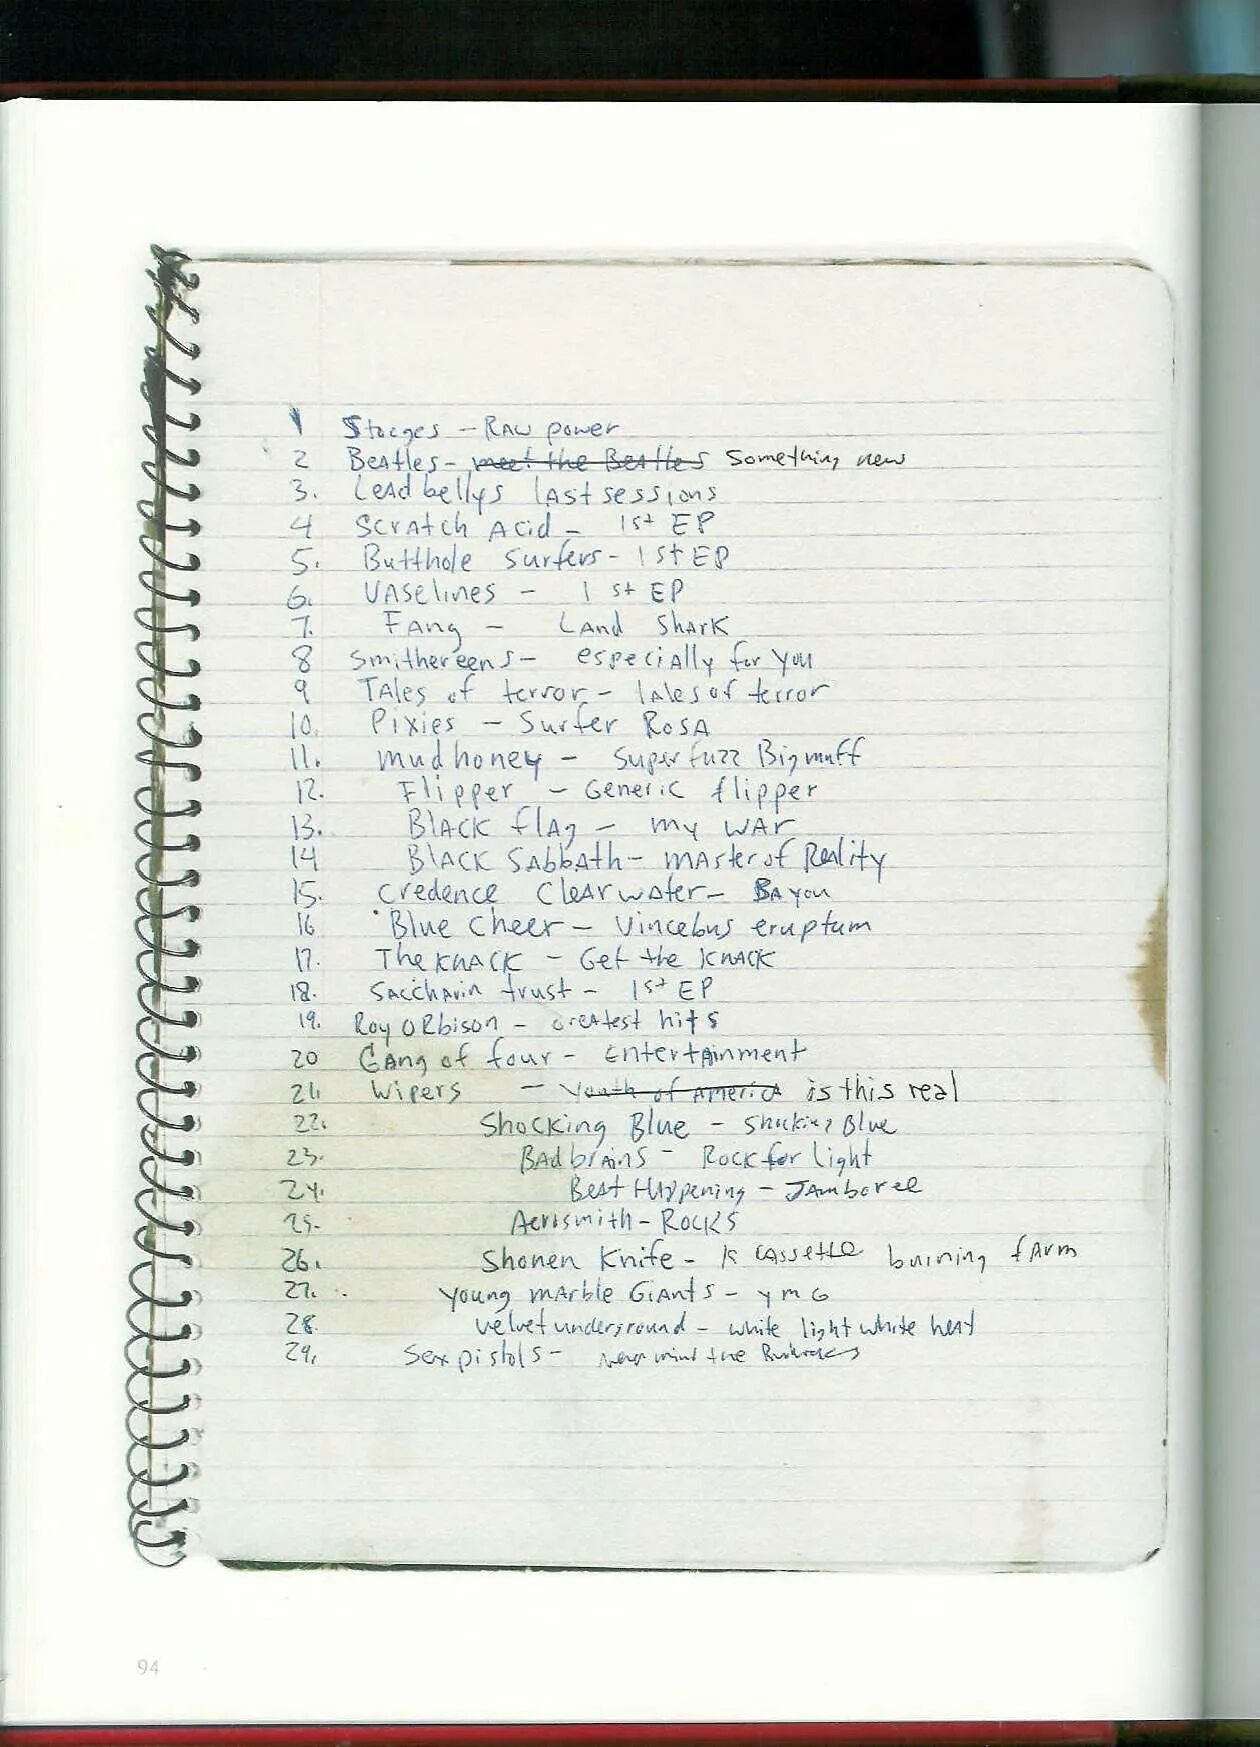 1 Stooges – Raw power
2 Beatles – meet the Beatles Something new
3. Leadbellys last sessions
4 Scratch Acid – 1st EP
5. Butthole Surfers – 1st EP
6. Vaselines – 1st EP
7. Fang – Land Shark
8 Smithereens – especially for you
9 Tales of terror – Tales of terror
10. Pixies – Surfer Rosa
11. mudhoney – Superfuzz Bigmuff
12. Flipper – Generic flipper
13. Black flag – my war
14 Black Sabbath – master of Reality
15. Credence Clearwater – Bayou
16 Blue Cheer – Vincebus eruptum
17. The Knack – Get the Knack
18. Saccharin trust – 1st EP
19. Roy Orbison – Greatest hits
20 Gang of four – Entertainment
21. Wipers – Youth of America is this real
22. Shocking Blue – Shocking Blue
23. Bad brains – Rock for light
24. Beat Happening – Jamboree
25. Aerosmith – Rocks
26. Shonen Knife – K cassette burning farm
27. Young marble Giants – YMG
28. Velvet underground – white light white heat
29. Sex pistols – never mind the
94